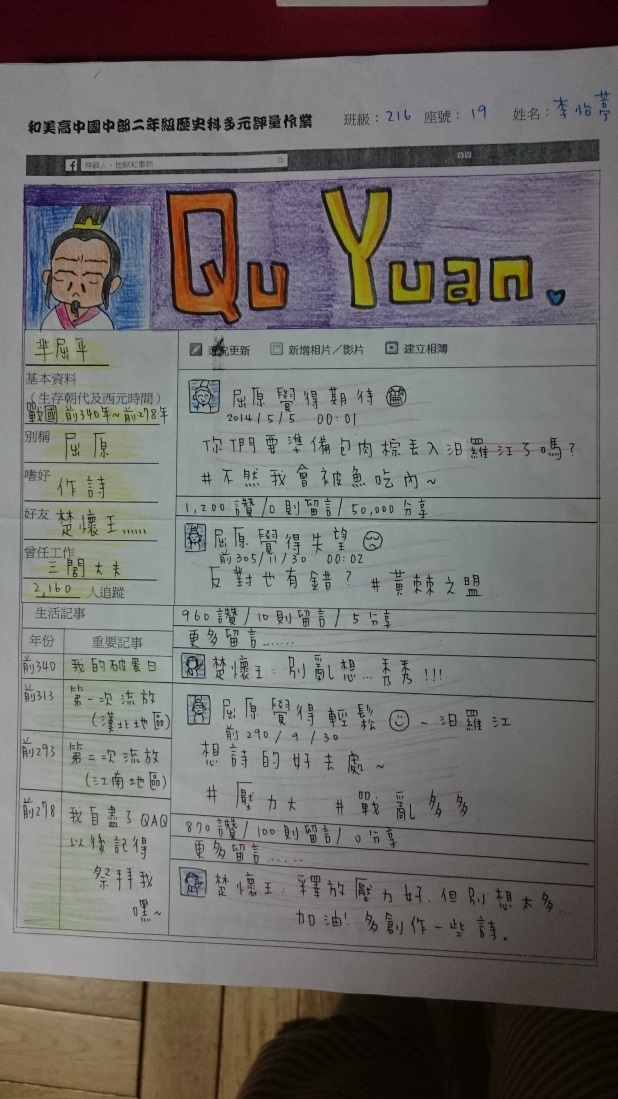 和美高中國中部二年級歷史科多元評量作業
班級：216 座號：19 姓名：李怡葶
f 搜尋人、地點和事物
Qu Yuan
羋屈平
基本資料
（生存朝代及西元時間）
戰國.前340年~前278年
別稱
屈原
嗜好
作詩
好友 楚懷王......
曾任工作
三閭大夫
2,160 人追蹤
生活記事
年份 重要記事
前340 我的破蛋日
前313 第一次流放
(漢北地區)
前293 第二次流放
(江南地區)
前278 我自盡了QAQ
以後記得
祭拜我
嘿~
近況更新 新增相片／影片 建立相簿
屈原覺得期待
2014/5/5 00:01
你們要準備包肉粽丟入汨羅江了嗎?
#不然我會被魚吃內~
1,200讚/0則留言/50,000分享
屈原覺得失望
前305/11/30 00:02
反對也有錯? #黃棘之盟
960讚/10則留言/5分享
更多留言.......
楚懷王:別亂想...秀秀!!!
屈原覺得輕鬆 - 汨羅江
前290/9/30
想詩的好去處~
#壓力大 #戰亂多多
870讚/100則留言/0分享
更多留言......
楚懷王:釋放壓力好.但別想太多...
加油!多創作一些詩。